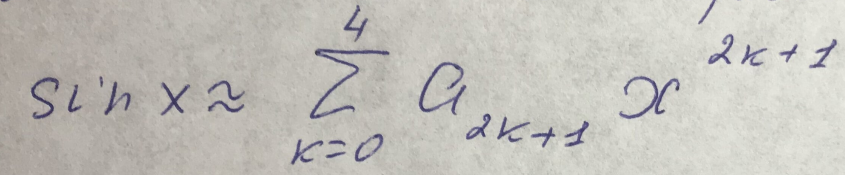 sin x ≈ \sum_{k=0}^{4} a_{2k+1} x^{2k+1}